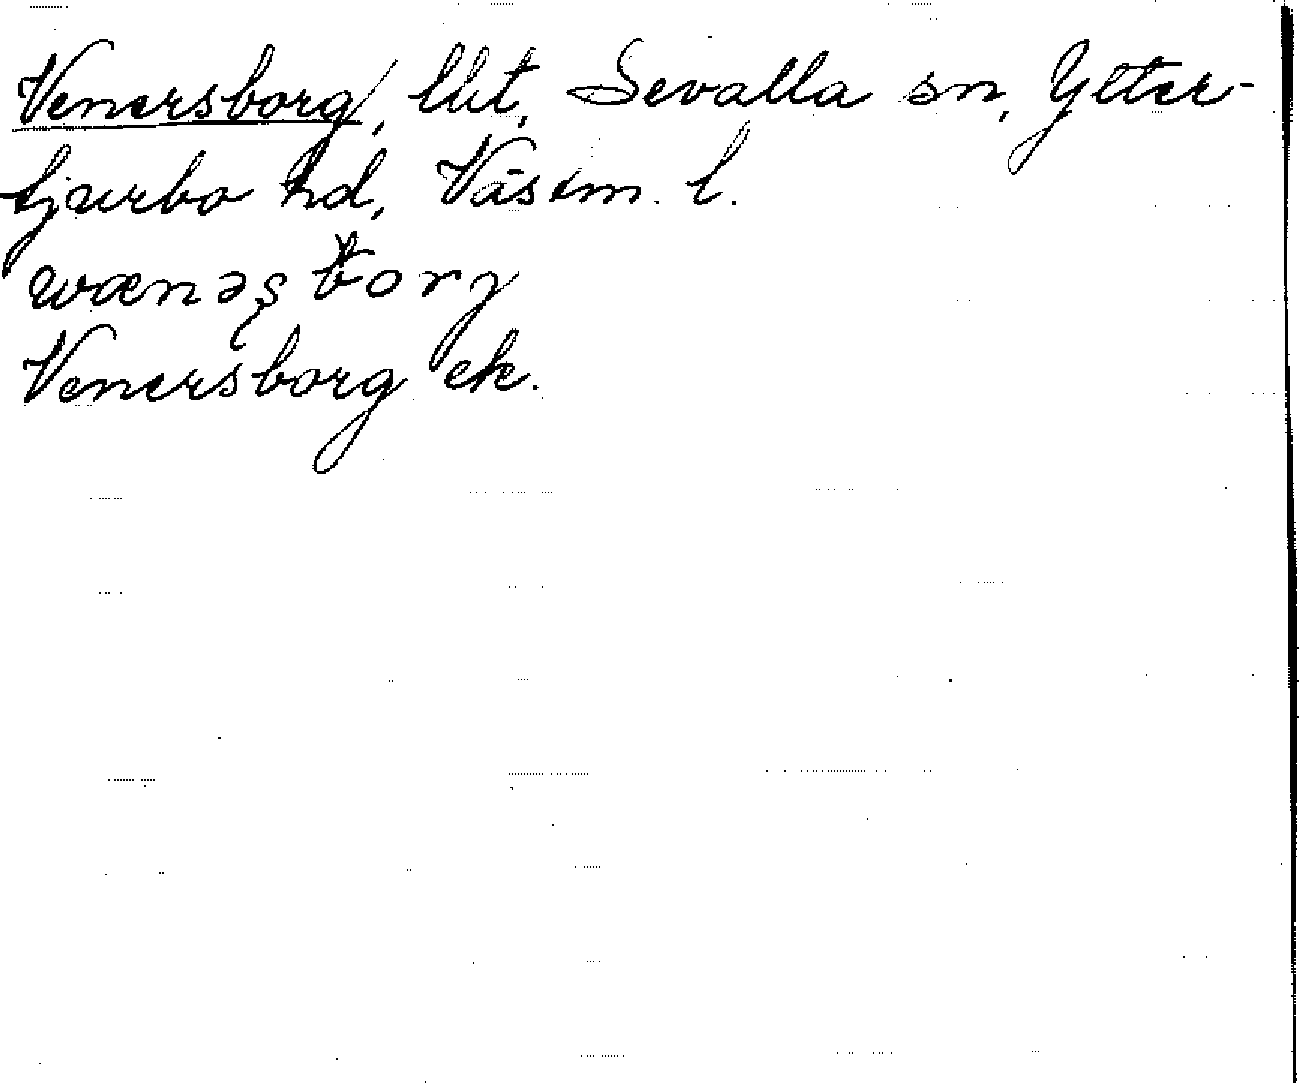 Venersborg, lht, Sevalla sn, Ytter-
tjurbo hd, Västm. l.
wænəs̨borγ
Venersborg ek.